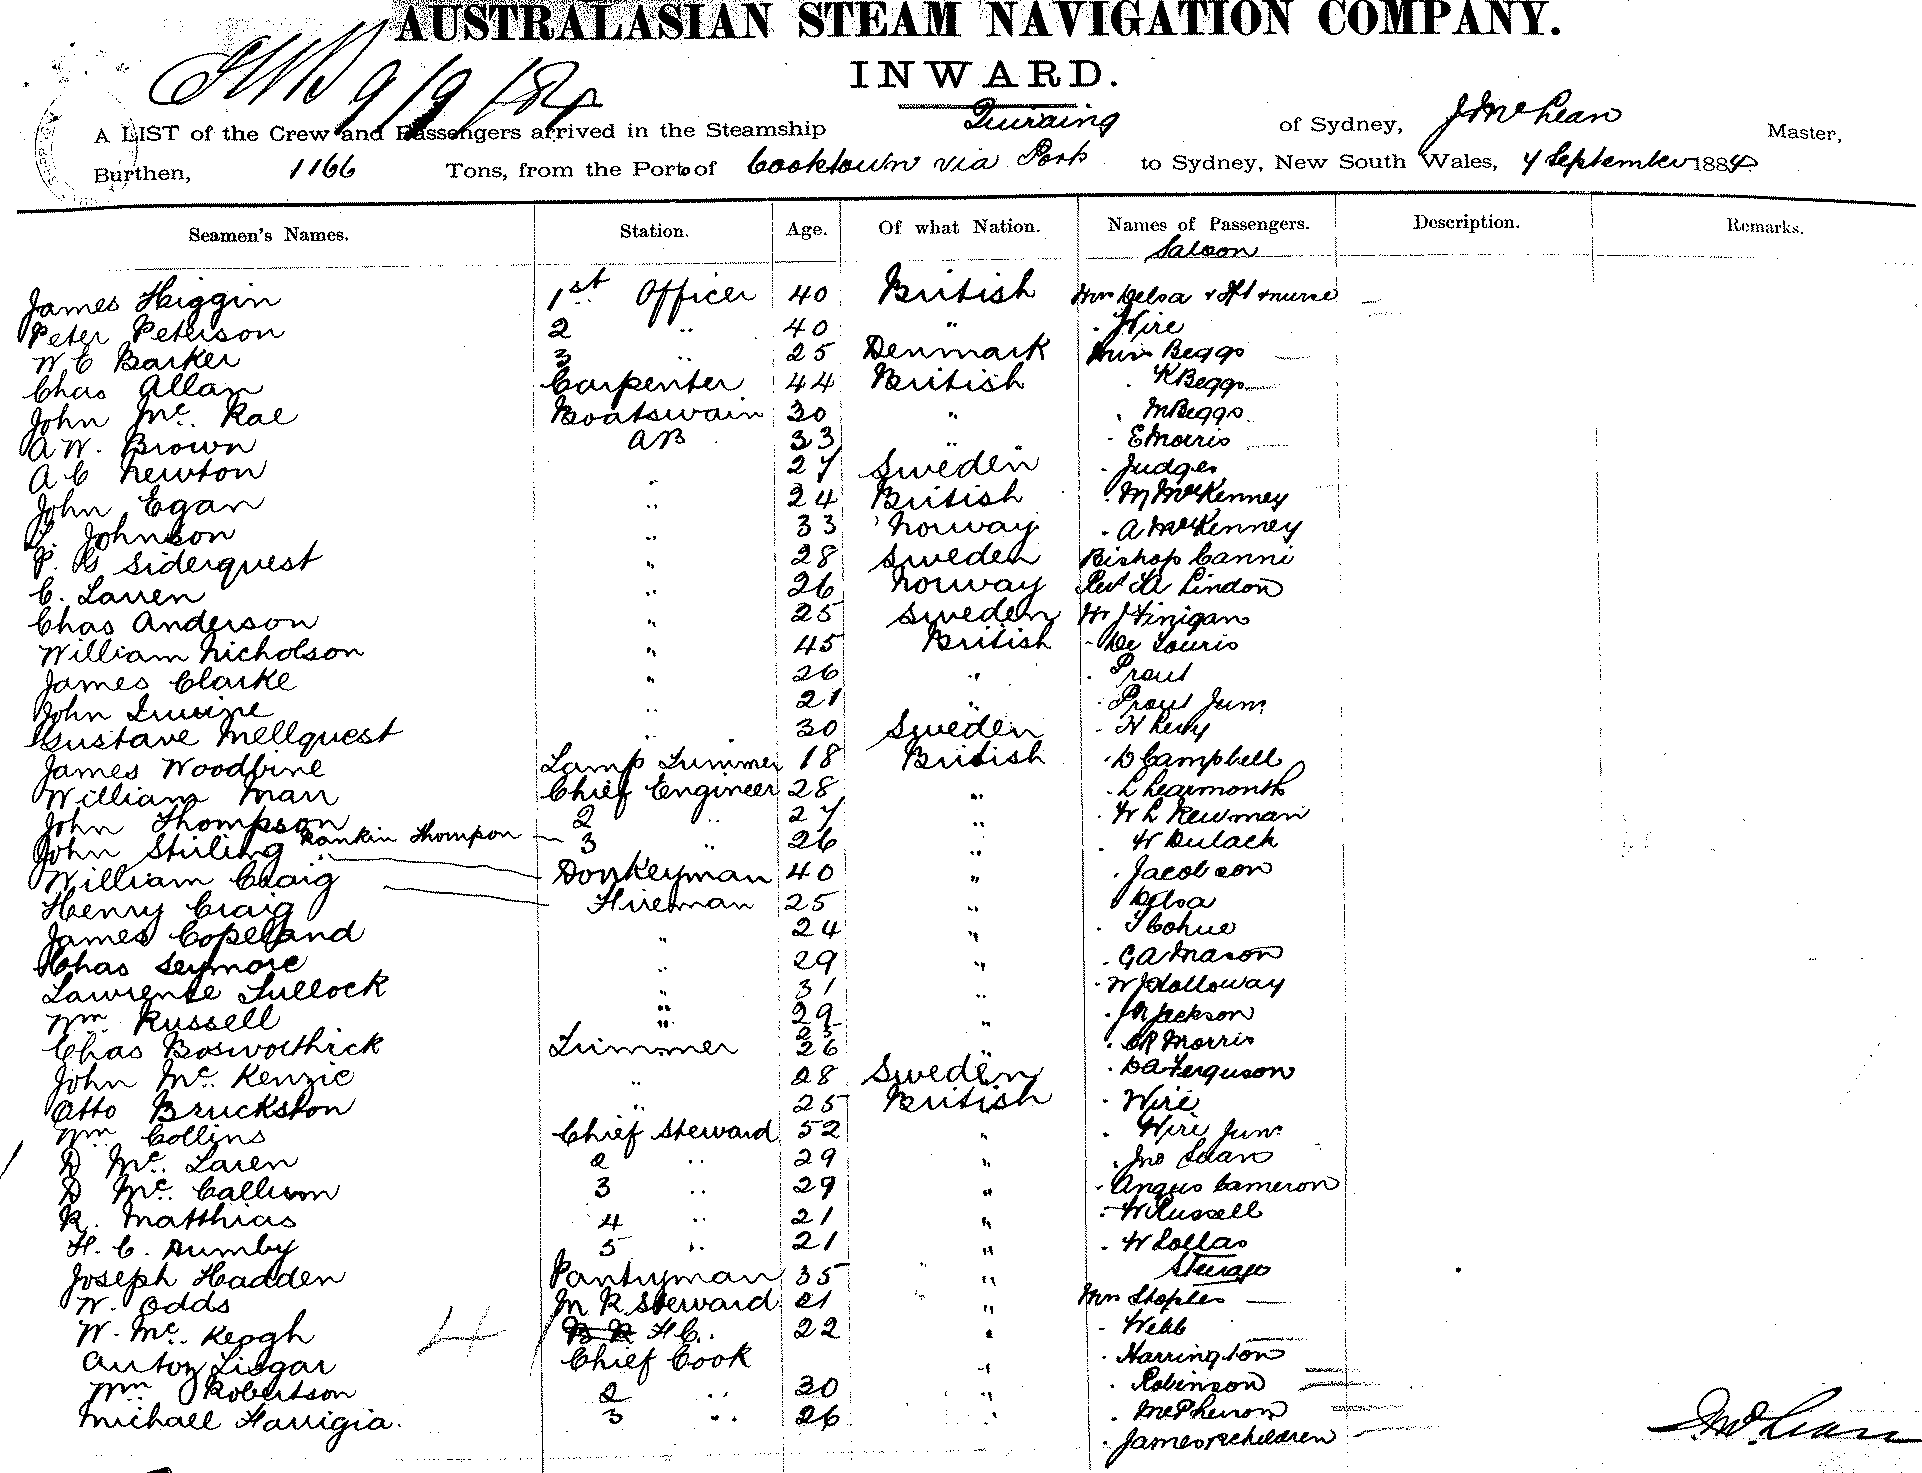 AUSTRALASIAN STEAM NAVIGATION COMPANY.
INWARD.
9/9/84
A LIST of the Crew and Passengers arrived in the Steamship Quiraing of Sydney, J McLean Master,
Burthen, 1166 Tons, from the Port of Cooktown via Ports to Sydney, New South Wales, 4 September 1884
Seamen's Names. Station. Age. Of what Nation. Names of Passengers. Description. Remarks.
Saloon
James Higgin 1st Officer 40 British Mrs Kelsa & Ht & nurse
Peter Peterson 2 " 40 " " Wire
W C Barker 3 " 25 Denmark Miss Beggs
Chas Allan Carpenter 44 British " K Beggs
John Mc Rae Boatswain 30 " " M Beggs
A W. Brown AB 33 " " E Morris
A C Newton " 27 Sweden " Judges
John Egan " 24 British " M McKenney
L. Johnson " 33 Norway " A McKenney
P. G Siderquest " 28 Sweden Bishop Canni
C. Larren " 26 Norway Revd Lindon
Chas Anderson " 25 Sweden Mr J Finigan
William Nicholson " 45 British " De Louris
James Clarke " 26 " " Prout
John Irwine " 21 " " Prout Junr
Gustave Mellquest " 30 Sweden " H Levy
James Woodbine Lamp Trimmer 18 British " D Campbell
William Marr Chief Engineer 28 " " L Learmonth
John Thompson 2 " 27 " " W L Newman
John Stirling Rankin Thompson 3 " 26 " " W Dulach
William Craig Donkeyman 40 " " Jacobson
Henry Craig Fireman 25 " " Kelsa
James Copeland " 24 " " T Cohue
Chas Seymore " 29 " " G A Mason
Lawrence Tullock " 31 " " W J Holloway
Wm. Russell " 29 " " J R Jackson
Chas Bosworthick Trimmer 26 " " C R Morris
John Mc. Kenzie " 28 Sweden " D A Ferguson
Otto Bruckston " 25 British " Wire
Wm Collins Chief Steward 52 " " Wire Junr
D Mc. Laren 2 " 29 " " Jno Sloan
D Mc. Callum 3 " 29 " " Angus Cameron
R. Matthias 4 " 21 " " W Russell
H. C. Dumby 5 " 21 " " W Lollas
Steerage
Joseph Hadden Pantryman 35 "
W. Odds M R Steward 21 " Mrs Staples
W. Mc. Keogh H C. 22 " " Webb
Anton Lisgar Chief Cook " " Harrington
Wm Robertson 2 " 30 " " Robinson
Michall Farrigia. 3 " 26 " " McPherson
" James & children
J. McLean